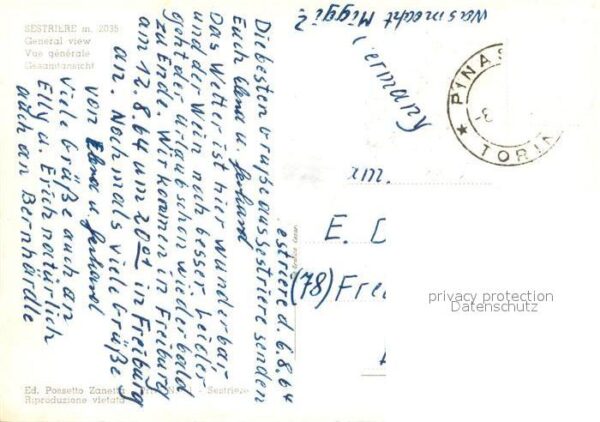 SESTRIERE m. 2035
General view
Vue générale
Gesamtansicht
estriere d. 6.8.64
Die besten Grüße aus Sestriere senden
Euch Elena u. Gerhard
Das Wetter ist hier wunderbar
und der Wein noch besser. Leider
geht der Urlaub schon wieder bald
zu Ende. Wir kommen in Freiburg
am 12.8.64 um 20 01 in Freiburg
an. Nochmals viele Grüße
von Elena u. Gerhard
Viele Grüße auch an
Elly u. Erich natürlich
auch an Bernhärdle
Was macht Miggi?
Germany
PINAS
TORIN
am.
E. D
(78) Frei
privacy protection
Datenschutz
Ed. Possetto Zanetta
- Sestriere
Riproduzione vietata